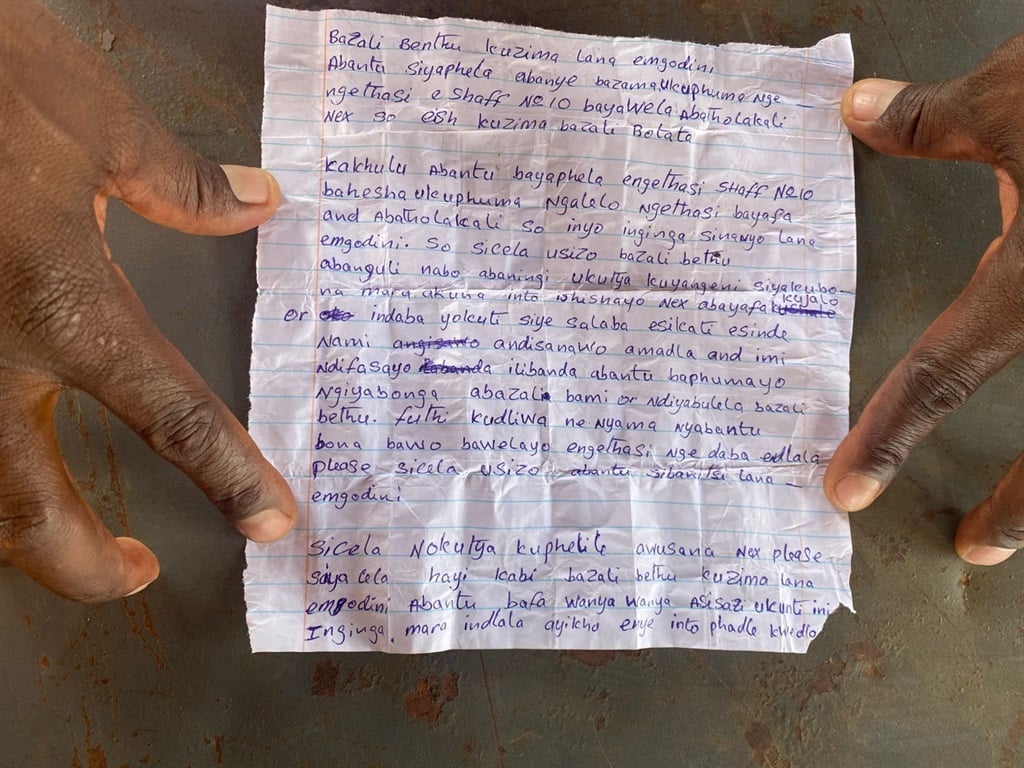 Bazali Benthu kuzima lana emgodini
Abantu siyaphela abanye bazama ukuphuma nge –
ngethasi e Shaff No 10 bayawela Abatholakali
Nex so eish kuzima bazali Botata
kakhulu Abantu bayaphela engethasi SHAFF No 10
bahesha ukuphuma Ngalelo Ngethasi bayafa
and Abatholakali so inyo inginga sinawyo lana
emgodini. So sicela usizo bazali bethu
abanguli nabo abaningi ukutya kuyangeni siyakubo –
na mara akuna into ishisnayo Nex abayafa kujalo
or indaba yokuti siye salaba esikati esinde
Nami andisanawo amadla and imi
Ndifasayo ilibanda abantu baphumayo
Ngiyabonga abazali bami or Ndiyabulela bazali
bethu. futhi kudliwa ne Nyama Nyabantu
bona bawo bawelayo engethasi Nge daba endlala
please sicela usizo abantu sibanitsi lana –
emgodini
Sicela Nokutya kuphelile awusana Nex please
siya cela hayi kabi bazali bethu kuzima lana
emgodini Abantu bafa wanya wanya Asisazi ukunti ini
Inginga. mara indlala ayikho enye into phadle kwedlo